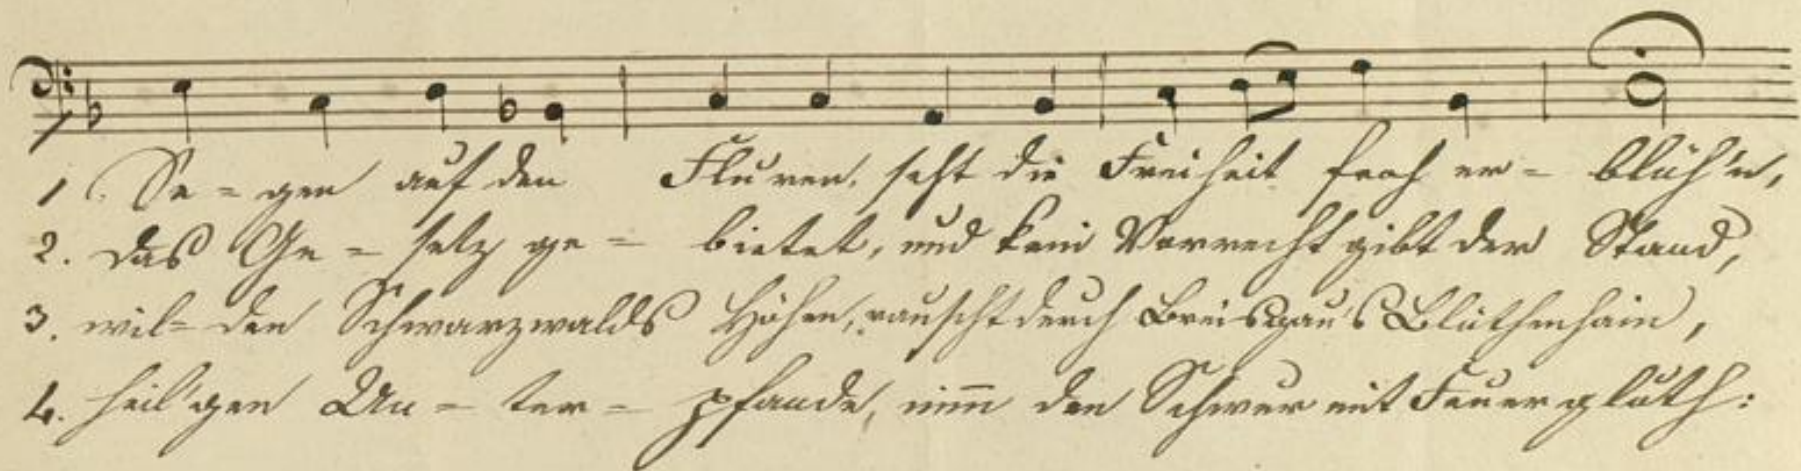 1. Se = gen auf den Fluren, seht die Freiheit froh er = blüh'n,
2. das Ge = setz ge = bietet, und kein Vorrecht gibt der Stand,
3. wil= den Schwarzwalds Höhen, rauscht durch Breisgau's Blüthenhain,
4. heil'gen Un = ter = pfande, nim̅ den Schwur mit Feuergluth: